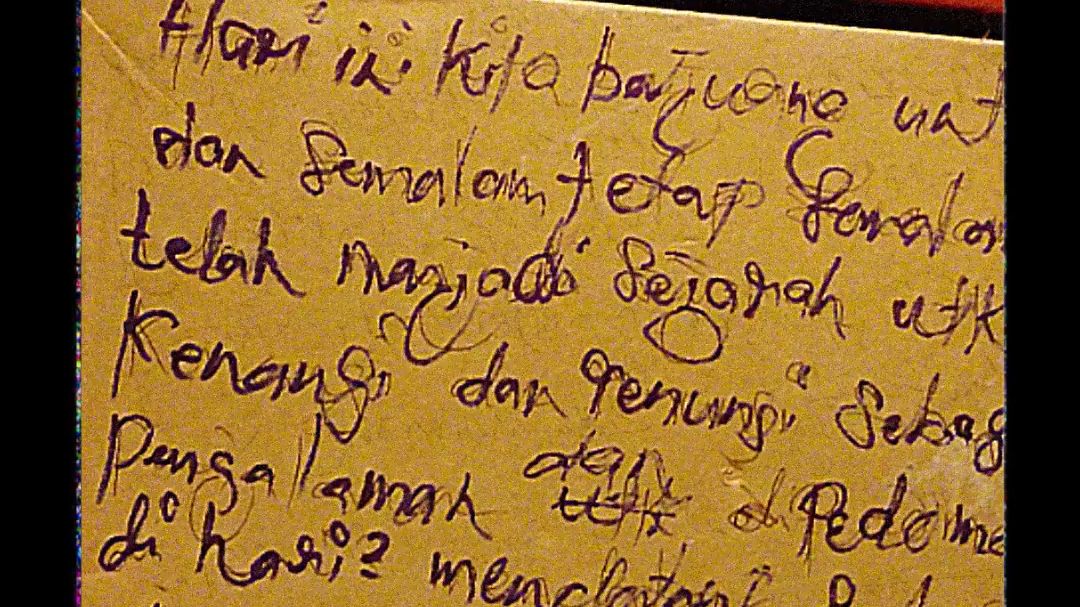 Hari ini kita bejuang unt
dan semalam tetap semalam
telah menjadi sejarah utk
Kenangi dan renungi sebag
Pengalaman dan di Pedoma
di hari2 mendatang